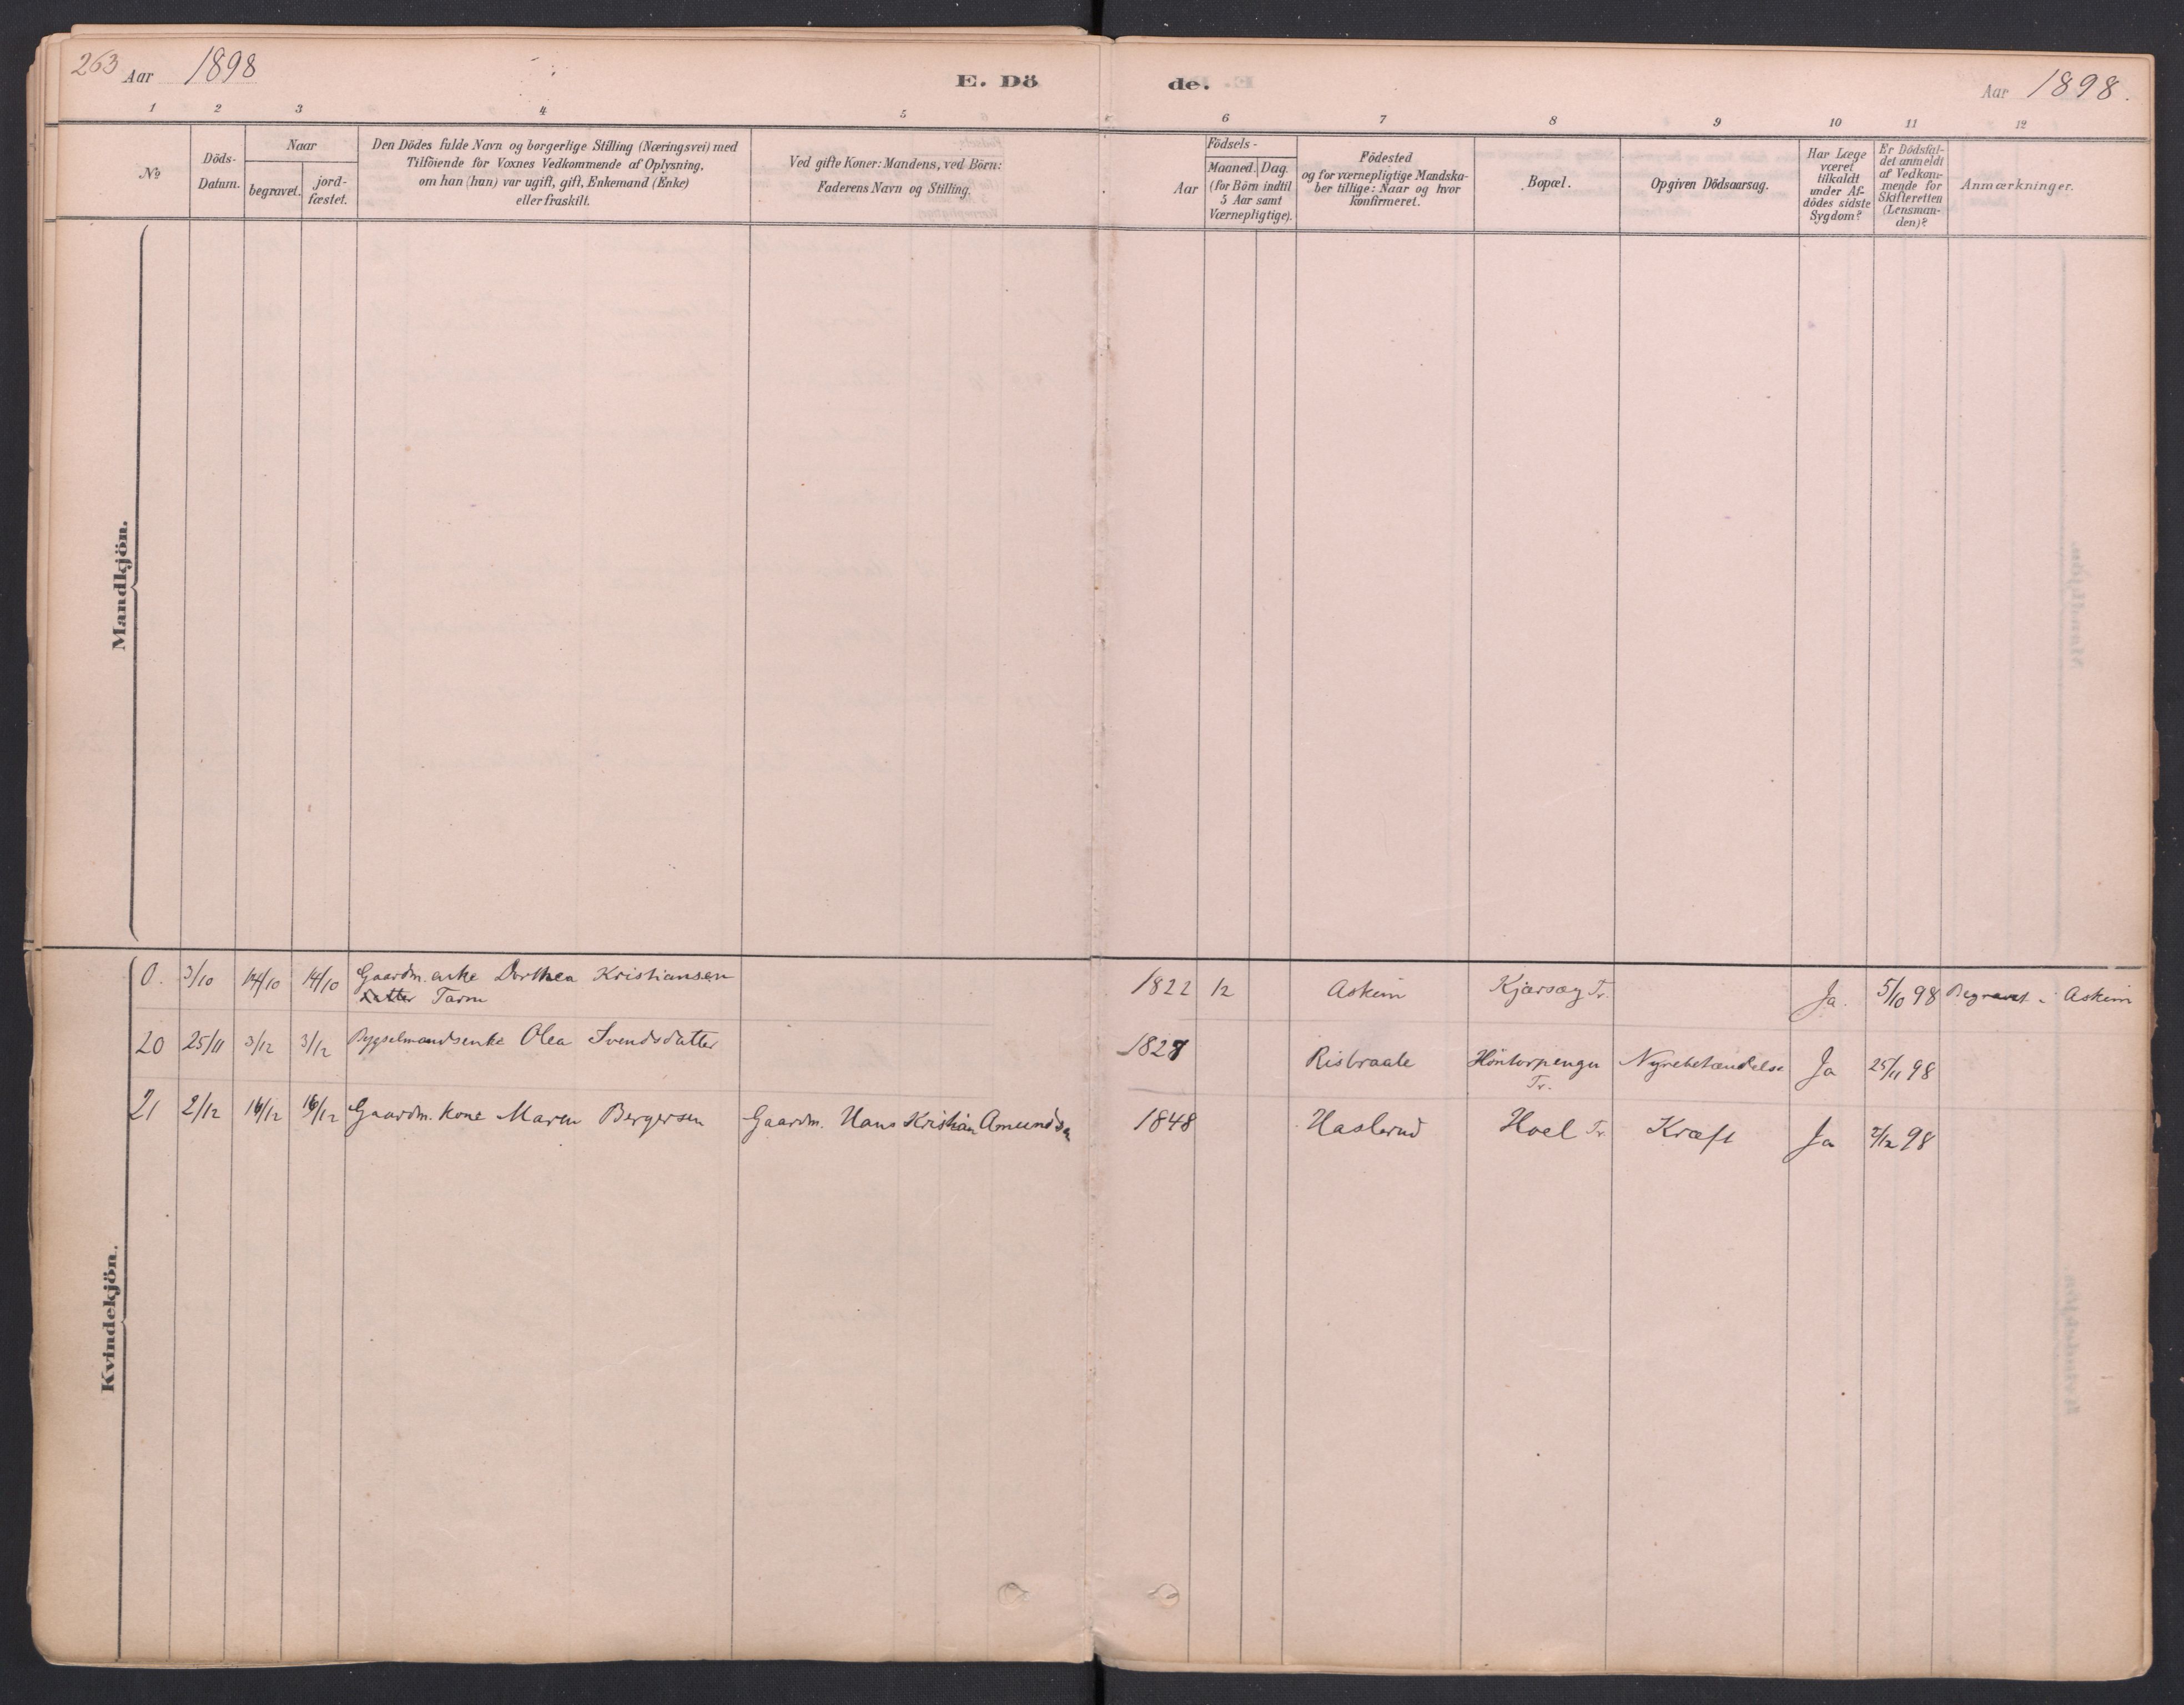 263 Aar 1898
E. Döde.
Aar 1898.
1 2 3 4 5 6 7 8 9 10 11 12
No
Döds-
Datum.
Naar
begravet.
jord-
fæstet.
Den Dödes fulde Navn og borgerlige Stilling (Næringsvei) med
Tilföiende for Voxnes Vedkommende af Oplysning,
om han (hun) var ugift, gift, Enkemand (Enke)
eller fraskilt.
Ved gifte Koner: Mandens, ved Börn:
Faderens Navn og Stilling.
Födsels-
Aar
Maaned. Dag.
(for Börn indtil
5 Aar samt
Værnepligtige).
Födested
og for værnepligtige Mandska-
ber tillige: Naar og hvor
konfirmeret.
Bopæl.
Opgiven Dödsaarsag.
Har Læge
været
tilkaldt
under Af-
dödes sidste
Sygdom?
Er Dödsfal-
det anmeldt
af Vedkom-
mende for
Skifteretten
(Lensman-
den)?
Anmærkninger.
Mandkjön.
Kvindekjön.
0. 3/10 14/10 14/10 Gaardm. enke Dorthea Kristiansen 1822 12 Askim Kjærsæg Tr. Ja. 5/10 98 Begravet i Askim
datter
20 25/11 3/12 3/12 Bygselmandsenke Olea Svendsdatter 1827 Risbraate Höntorpengen Nyrebetændelse Ja 25/11 98
Tr.
21 2/12 16/12 16/12 Gaardm. kone Maren Bergersen Gaardm. Hans Kristian Amundsen 1848 Haslerud Hoel Tr. Kræft Ja 5/12 98